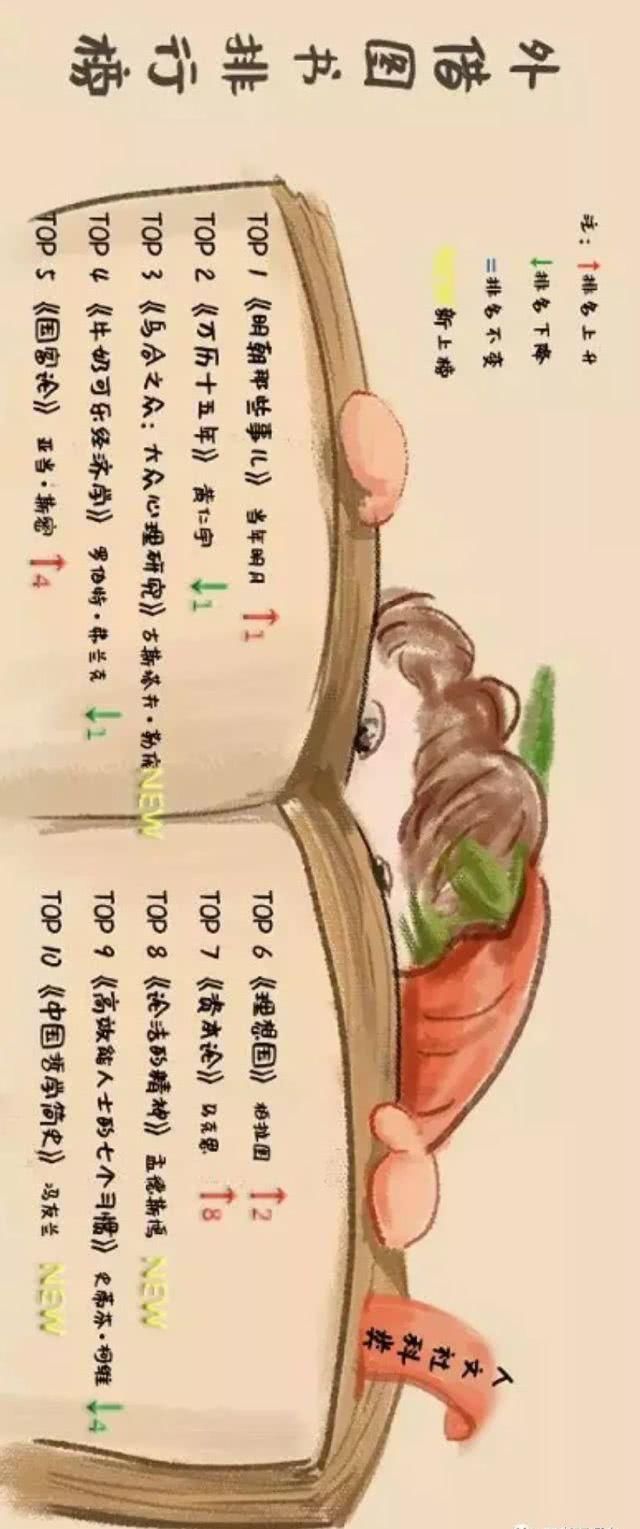 外借图书排行榜
注：↑排名上升
↓排名下降
=排名不变
NEW 新上榜
TOP 1 《明朝那些事儿》 当年明月 ↑1
TOP 2 《万历十五年》 黄仁宇 ↓1
TOP 3 《乌合之众：大众心理研究》 古斯塔夫·勒庞 NEW
TOP 4 《牛奶可乐经济学》 罗伯特·弗兰克 ↓1
TOP 5 《国富论》 亚当·斯密 ↑4
TOP 6 《理想国》 柏拉图 ↑2
TOP 7 《资本论》 马克思 ↑8
TOP 8 《论法的精神》 孟德斯鸠 NEW
TOP 9 《高效能人士的七个习惯》 史蒂芬·柯维 ↓4
TOP 10 《中国哲学简史》 冯友兰 NEW
人文社科类